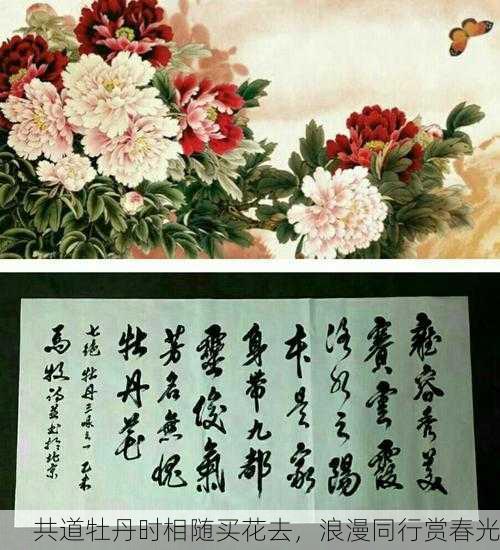 雍容秀美
賽雲霞
洛水之陽
本是家
身帶九都
靈俊氣
芳名無愧
牡丹花
七绝 牡丹三咏之一 乙未
馬牧 詩並书於北京
共道牡丹时相随买花去，浪漫同行赏春光